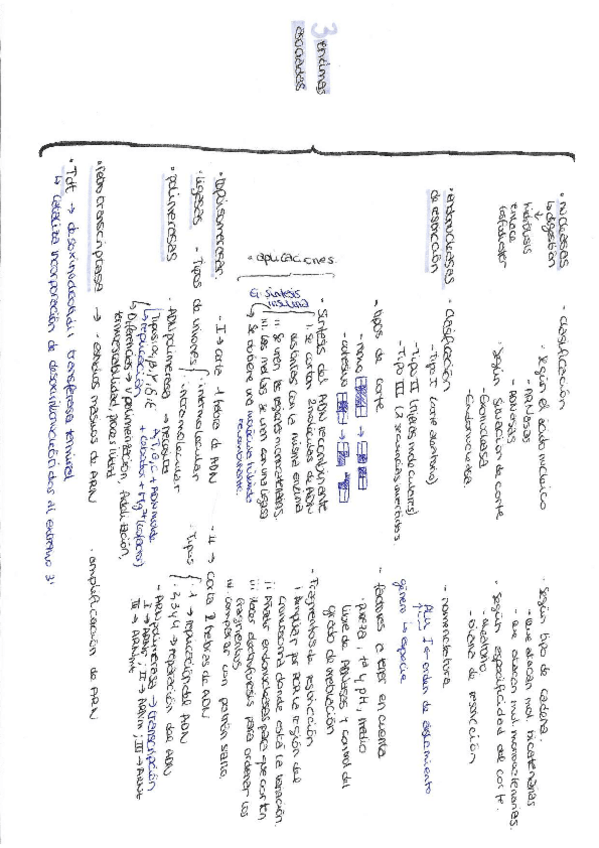 3 enzimas
asociadas
• nucleasas
↳ digestión
↓
hidrólisis
enlace
fosfodiéster
• clasificación
• Según el ácido nucleico
- ARNasas
- ADNasas
• Según situación de corte
- Exonucleasa
- Endonucleasa.
• Según tipo de cadena.
- que atacan mol. bicatenarias
- que atacan mol monocatenarias.
• Según especificidad del corte.
- aleatorio
- diana de restricción
• endonucleasas
de restricción
• clasificación
- Tipo I (corte aleatorio)
- Tipo II (tijeras moleculares)
- Tipo III (2 secuencias invertidas).
• nomenclatura
Alu I ← orden de aislamiento
género ↳ especie
• tipos de corte
- romo
- cohesivo
• factores a tener en cuenta
- pureza, tª y pH, medio
libre de ADNasas + control del
grado de metilación
• aplicaciones
• Síntesis del ADN recombinante
i. se cortan 2 moléculas de ADN
distintas con la misma enzima
ii. se unen las regiones monocatenarias
iii. Las mellas se unen con una ligasa
↳ se obtiene una molécula híbrida
recombinante.
Ej: síntesis
insulina
• Fragmentos de restricción
i Ampliar por PCR la región del
cromosoma donde está la variación.
ii Añadir endonucleasas para que corten
iii Hacer electroforesis para ordenar los
fragmentos
iv. comparar con patrón sano.
• topoisomerasas
- I → corte 1 hebra de ADN
- II → corta 2 hebras de ADN
• ligasas
- Tipos de uniones
· intermolecular
· intramolecular
- Tipos
· 1 → replicación del ADN
· 2, 3, 4 → reparación del ADN
• polimerasas
- ADN polimerasa → necesita
A, T, G, C + ADN molde
+ cebador + Mg²⁺ (cofactor)
Tipos: α, β, γ, δ, ε
↳ replicación
↳ Diferencias → V polimerización, fidelización,
termoestabilidad, procesividad
· ARN polimerasa → transcripción
I → ARNr; II → ARNm; III → ARNt
• Retrotranscriptasa → - estudios masivos de ARN
· amplificación de ARN
• Tdt → desoxinucleotidil transferasa terminal
↳ cataliza incorporación de desoxirribonucleótidos al extremo 3'